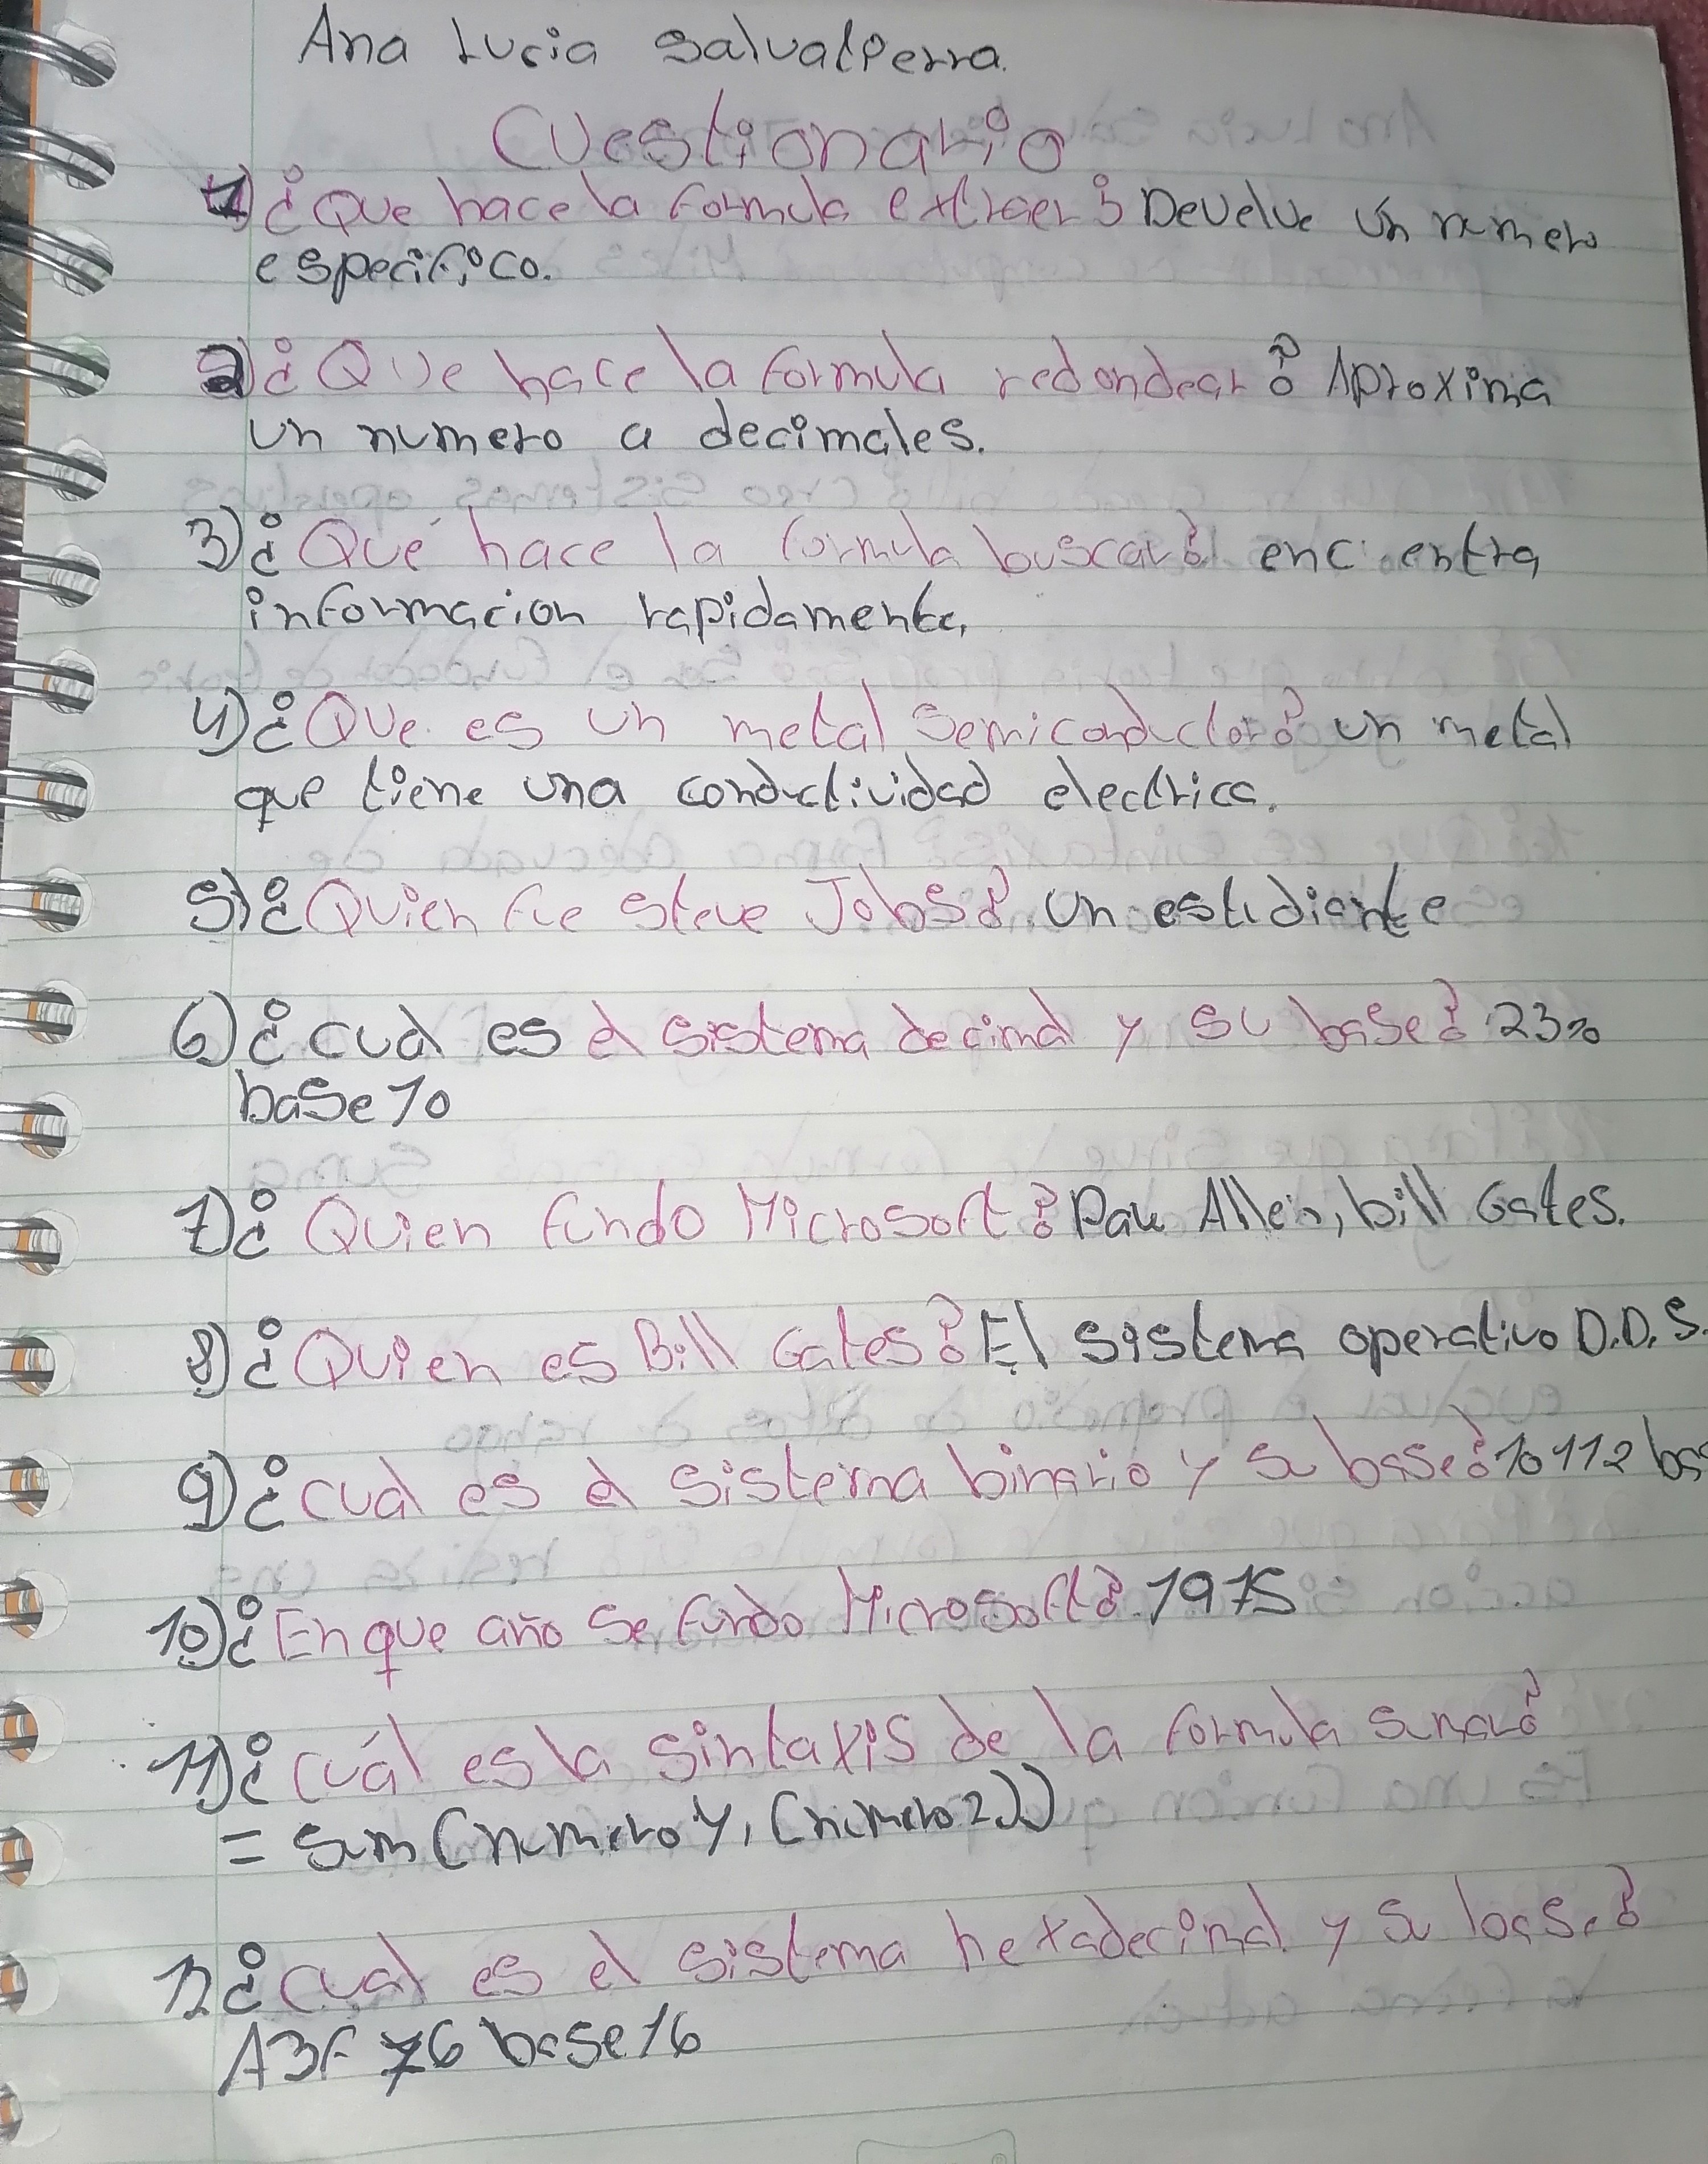 Ana Lucia Salvatierra.
Cuestionario
1) ¿Que hace la formula extraer? Develve un numero
especifico.
2) ¿Que hace la formula redondear? Aproxima
un numero a decimales.
3) ¿Qué hace la formula buscar? encuentra
informacion rapidamente.
4) ¿Que es un metal semiconductor? un metal
que tiene una conductividad electrica.
5) ¿Quien fue steve Jobs? un estudiante
6) ¿cual es el sistema decimal y su base? 23
base 10
7) ¿Quien fundo Microsoft? Paul Allen, bill Gates.
8) ¿Quien es Bill Gates? El sistema operativo D.D.S.
9) ¿cual es el sistema binario y su base? 10112 bas
10) ¿En que año se fundo Microsoft? 1975
11) ¿cuál es la sintaxis de la formula sumar?
= sum (numero y, (numero 2))
12 ¿cual es el sistema hexadecimal y su base?
A3F 76 base 16